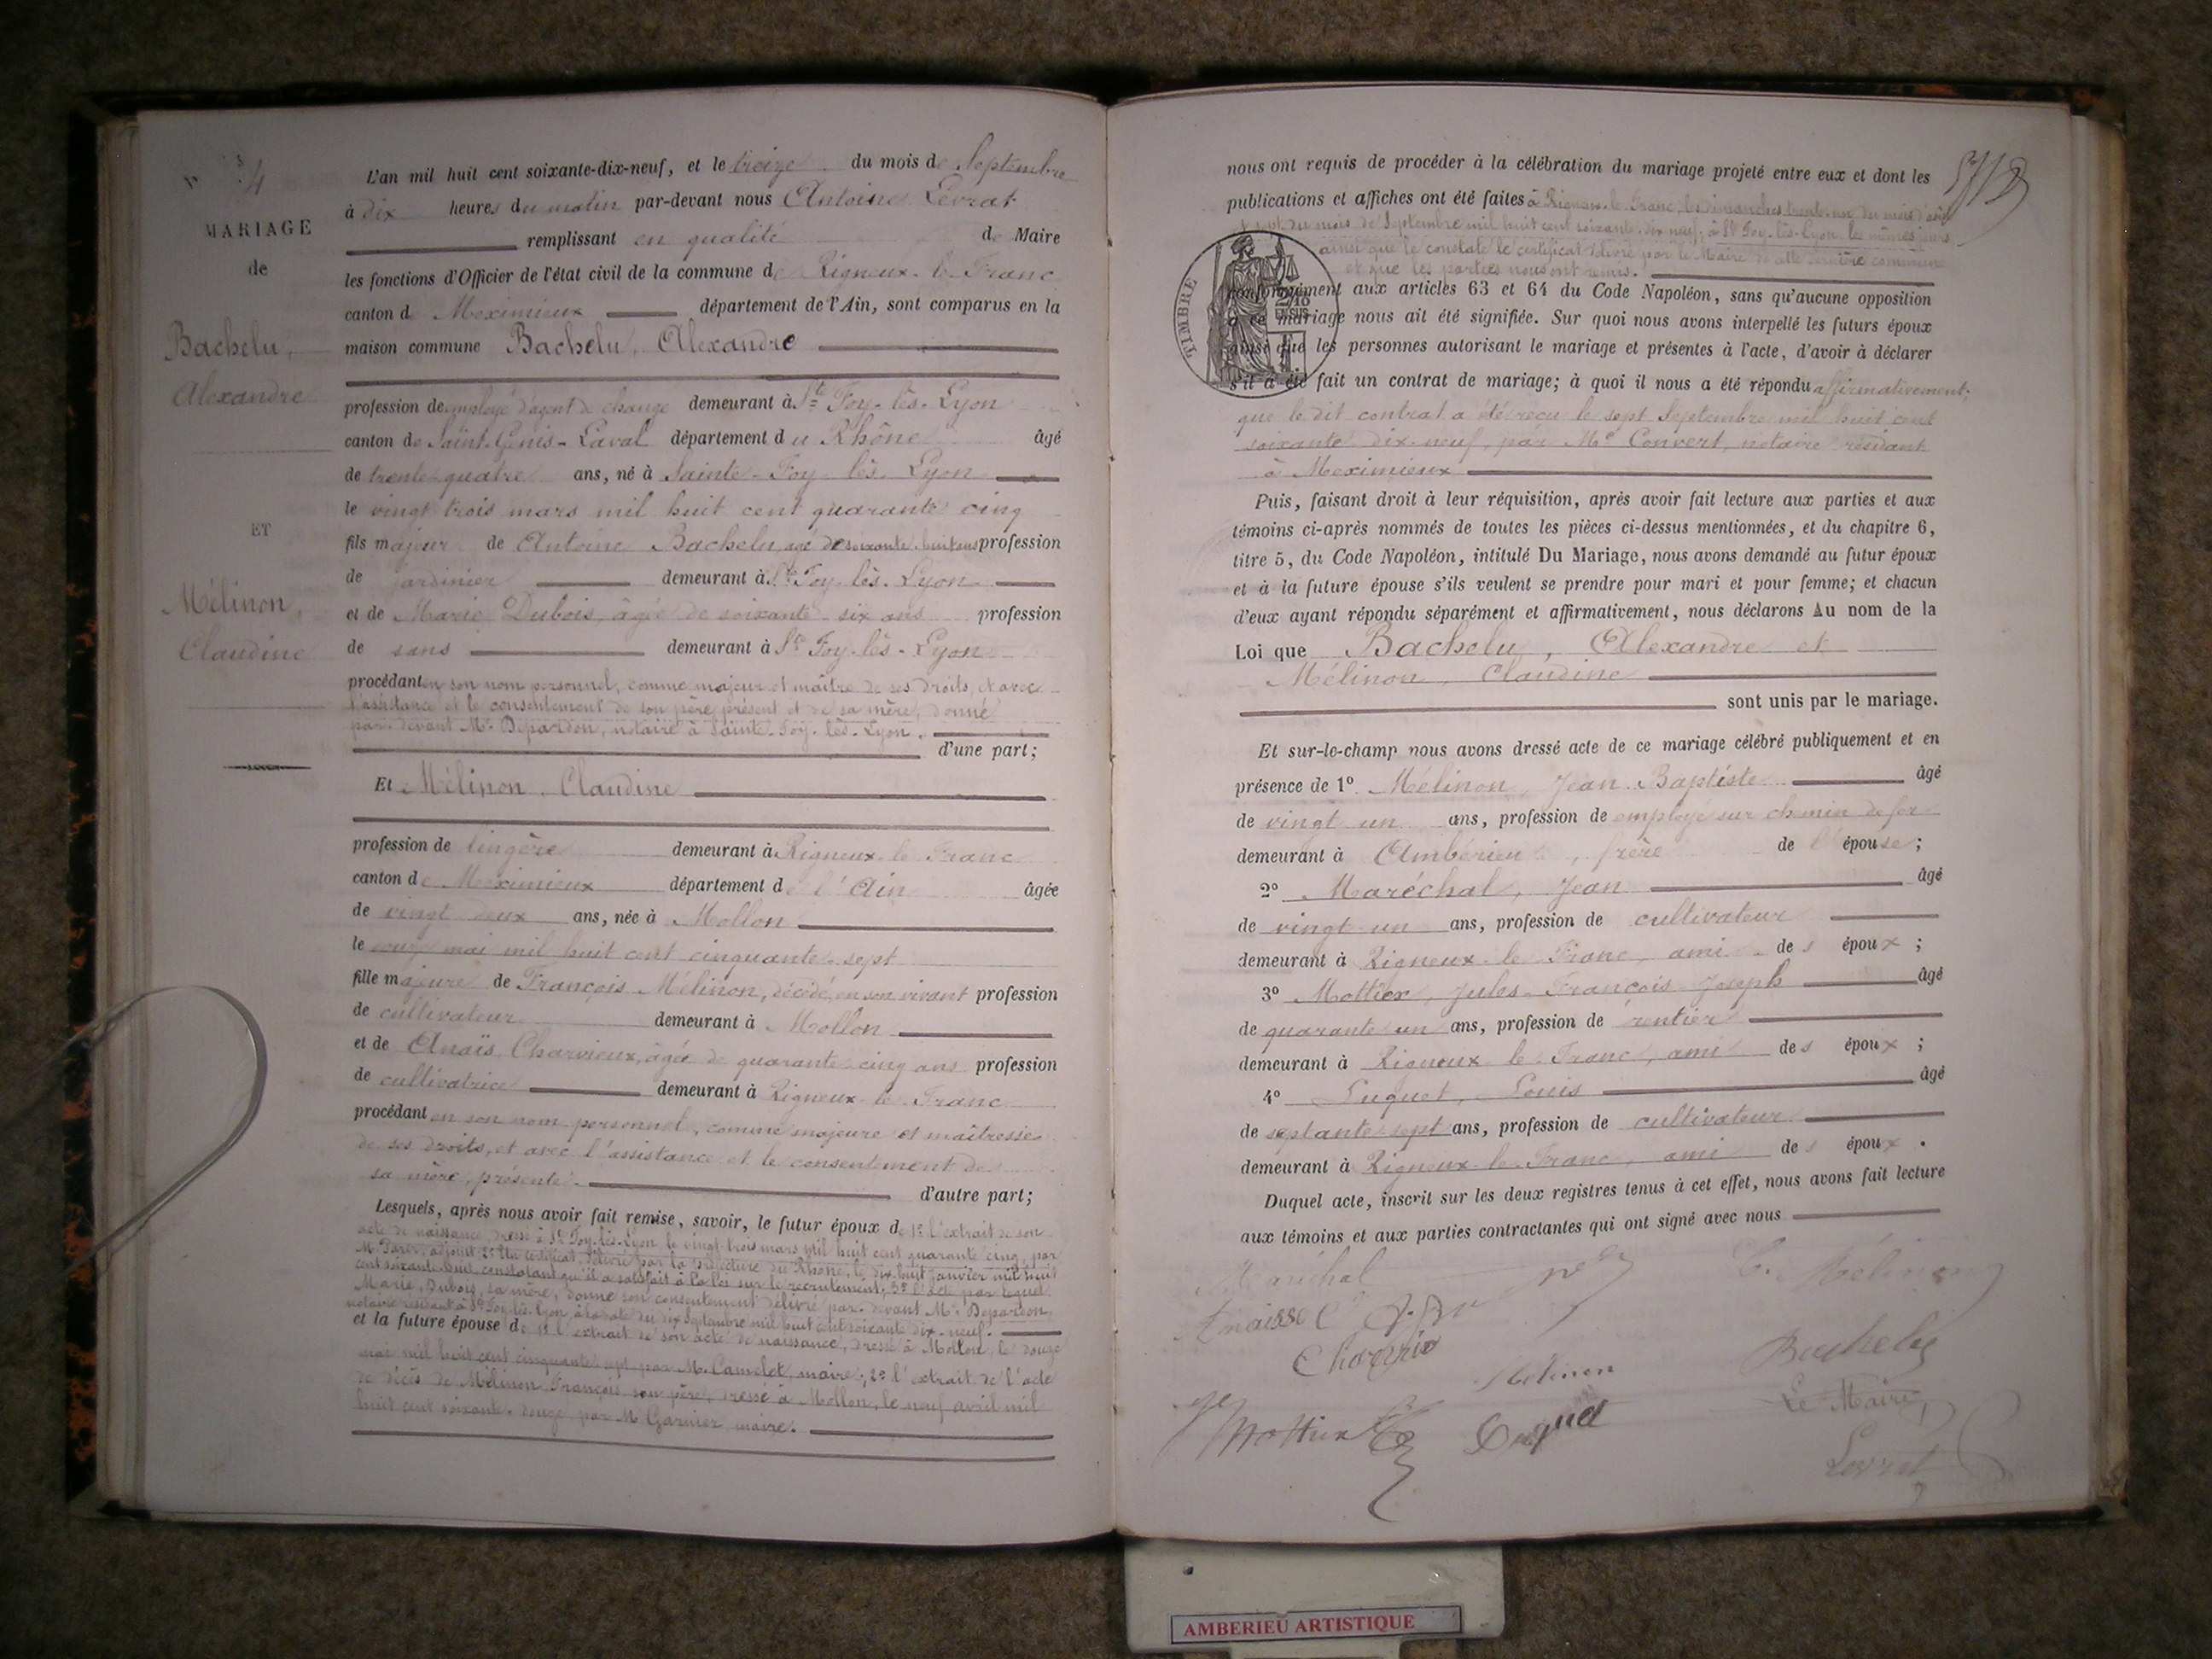 N° 4
MARIAGE
de
Bachelu,
Alexandre
ET
Mélinon,
Claudine
L'an mil huit cent soixante-dix-neuf, et le treize du mois de Septembre
à dix heures du matin par-devant nous Antoine Levrat
remplissant en qualité de Maire
les fonctions d'Officier de l'état civil de la commune de Rigneux-le-Franc
canton de Meximieux département de l'Ain, sont comparus en la
maison commune Bachelu, Alexandre
profession de employé d'agent de change demeurant à Ste Foy-lès-Lyon
canton de Saint-Genis-Laval département du Rhône âgé
de trente-quatre ans, né à Sainte-Foy-lès-Lyon
le vingt-trois mars mil huit cent quarante cinq
fils majeur de Antoine Bachelu, agé de soixante-huit ans profession
de jardinier demeurant à Ste Foy-lès-Lyon
et de Marie Dubois, âgée de soixante-six ans profession
de sans demeurant à Ste Foy-lès-Lyon
procédant en son nom personnel, comme majeur et maître de ses droits, et avec
l'assistance et le consentement de son père présent et de sa mère, donné
par-devant Me Depardon, notaire à Sainte-Foy-lès-Lyon.
d'une part;
Et Mélinon, Claudine
profession de lingère demeurant à Rigneux-le-Franc
canton de Meximieux département de l'Ain âgée
de vingt-deux ans, née à Mollon
le mai mil huit cent cinquante-sept
fille majeure de François Mélinon, décédé, en son vivant profession
de cultivateur demeurant à Mollon
et de Anaïs Charvieux, âgée de quarante-cinq ans profession
de cultivatrice demeurant à Rigneux-le-Franc
procédant en son nom personnel, comme majeure et maîtresse
de ses droits, et avec l'assistance et le consentement de
sa mère, présente.
d'autre part;
Lesquels, après nous avoir fait remise, savoir, le futur époux de 1° l'extrait de son
acte de naissance, dressé à Ste Foy-lès-Lyon le vingt-trois mars mil huit cent quarante cinq, par
M. adjoint, 2° Un certificat, délivré par la préfecture du Rhône, le dix-huit janvier mil huit
cent soixante-huit constatant qu'il a satisfait à la loi sur le recrutement, 3° l'acte par lequel
Marie, Dubois, sa mère, donne son consentement délivré par-devant Me Depardon,
notaire résidant à Ste Foy-lès-Lyon, à la date du dix Septembre mil huit cent soixante-dix-neuf.
et la future épouse de 1° l'extrait de son acte de naissance, dressé à Mollon, le douze
mai mil huit cent cinquante-sept par M. Camelet, maire; 2° l'extrait de l'acte
de décès de Mélinon François son père, dressé à Mollon, le neuf avril mil
huit cent soixante-douze par M. Garnier, maire.
nous ont requis de procéder à la célébration du mariage projeté entre eux et dont les
publications et affiches ont été faites à Rigneux-le-Franc, les dimanches trente-un du mois d'août
et sept du mois de Septembre mil huit cent soixante-dix-neuf; à Ste Foy-lès-Lyon les mêmes jours
ainsi que le constate le certificat délivré par le Maire de cette dernière commune
et que les parties nous ont remis.
TIMBRE
conformément aux articles 63 et 64 du Code Napoléon, sans qu'aucune opposition
à ce mariage nous ait été signifiée. Sur quoi nous avons interpellé les futurs époux
ainsi que les personnes autorisant le mariage et présentes à l'acte, d'avoir à déclarer
s'il a été fait un contrat de mariage; à quoi il nous a été répondu affirmativement.
que le dit contrat a été reçu le sept Septembre mil huit cent
soixante dix-neuf, par Me Convert, notaire résidant
à Meximieux
Puis, faisant droit à leur réquisition, après avoir fait lecture aux parties et aux
témoins ci-après nommés de toutes les pièces ci-dessus mentionnées, et du chapitre 6,
titre 5, du Code Napoléon, intitulé Du Mariage, nous avons demandé au futur époux
et à la future épouse s'ils veulent se prendre pour mari et pour femme; et chacun
d'eux ayant répondu séparément et affirmativement, nous déclarons Au nom de la
Loi que Bachelu, Alexandre et
Mélinon, Claudine
sont unis par le mariage.
Et sur-le-champ nous avons dressé acte de ce mariage célébré publiquement et en
présence de 1° Mélinon, Jean Baptiste âgé
de vingt-un ans, profession de employé sur chemin de fer
demeurant à Ambérieu, frère de l'épouse;
2° Maréchal, Jean âgé
de vingt-un ans, profession de cultivateur
demeurant à Rigneux-le-Franc, ami des époux;
3° Mottier, Jules-François-Joseph âgé
de quarante-un ans, profession de rentier
demeurant à Rigneux-le-Franc, ami des époux;
4° Luquet, Louis âgé
de septante-sept ans, profession de cultivateur
demeurant à Rigneux-le-Franc, ami des époux.
Duquel acte, inscrit sur les deux registres tenus à cet effet, nous avons fait lecture
aux témoins et aux parties contractantes qui ont signé avec nous
Maréchal
C. Mélinon
Charvin
Mélinon
Bachelu
Mottier
Luquet
Le Maire,
Levrat
AMBERIEU ARTISTIQUE